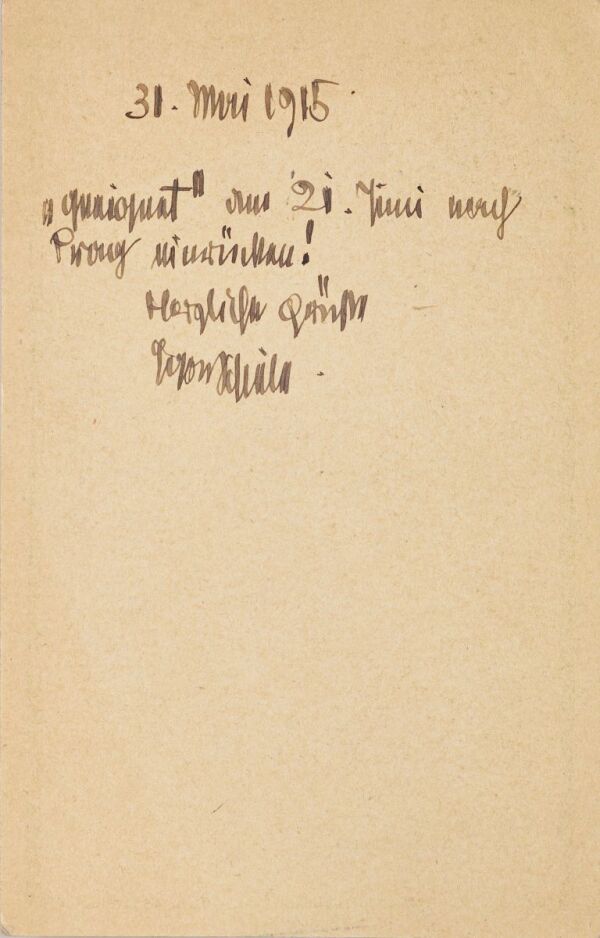 31. Mai 1915
„geeignet" am 21. Juni nach
Prag einrücken!
Herzliche Grüße
Egon Schiele